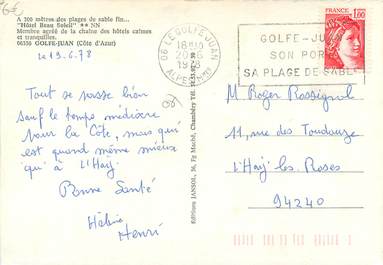 A 200 mètres des plages de sable fin...
"Hôtel Beau Soleil" ** NN
Membre agréé de la chaîne des hôtels calmes
et tranquilles.
06350 GOLFE-JUAN (Côte d'Azur)
le 19.6.78
Tout se passe bien
sauf le temps médiocre
pour la Côte, mais qui
est quand même mieux
qu'à L'Haÿ.
Bonne Santé
Hélène
Henri
Editions JANSOL, Chambéry
06 LE GOLFE JUAN
18H30
20-6
1978
ALPES MMES
GOLFE-JUAN
SON PORT
SA PLAGE DE SABLE
FRANCE
1,00
M Roger Rossignol
11, rue des Toudouze
L'Haÿ les Roses
94240